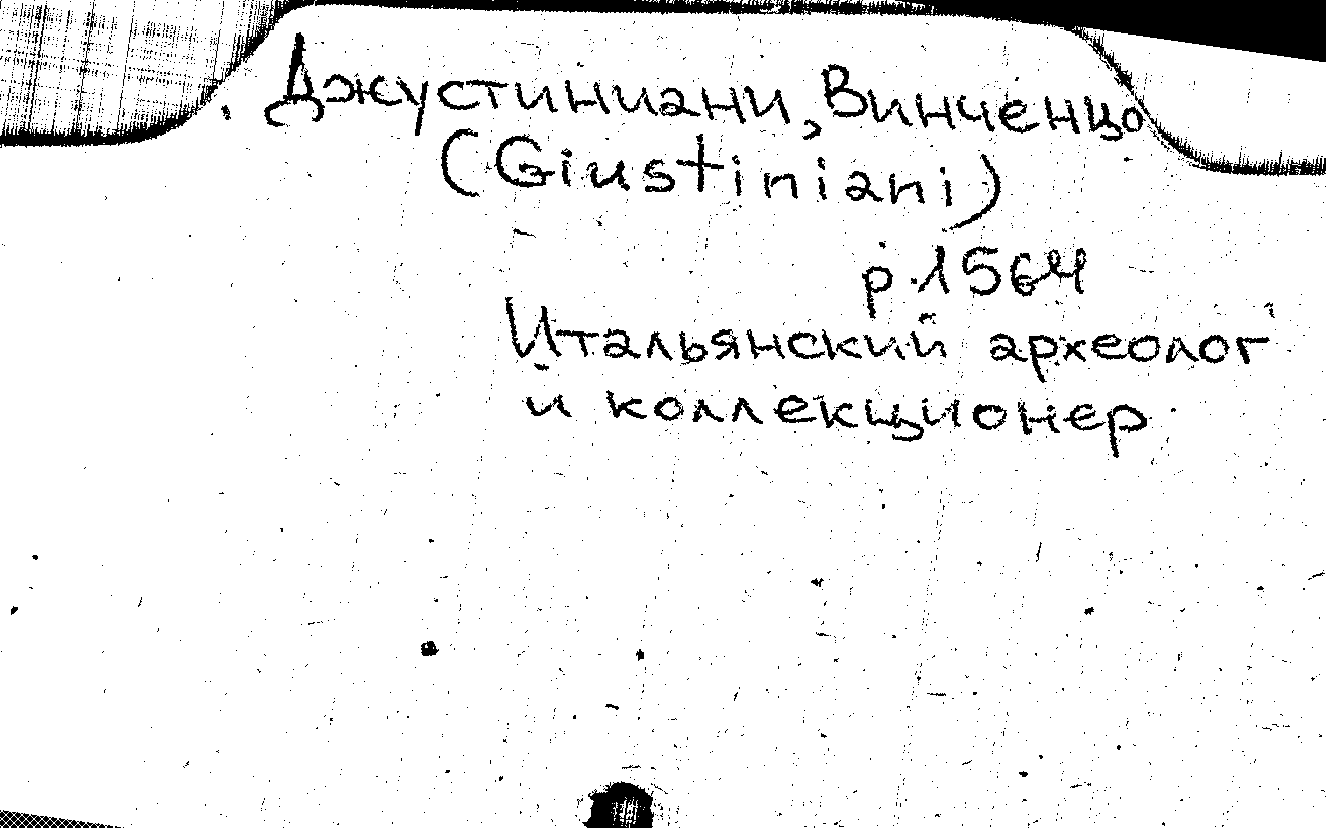 Джустиниани, Винченцо
(Giustiniani)
р. 1564
Итальянский археолог
и коллекционер